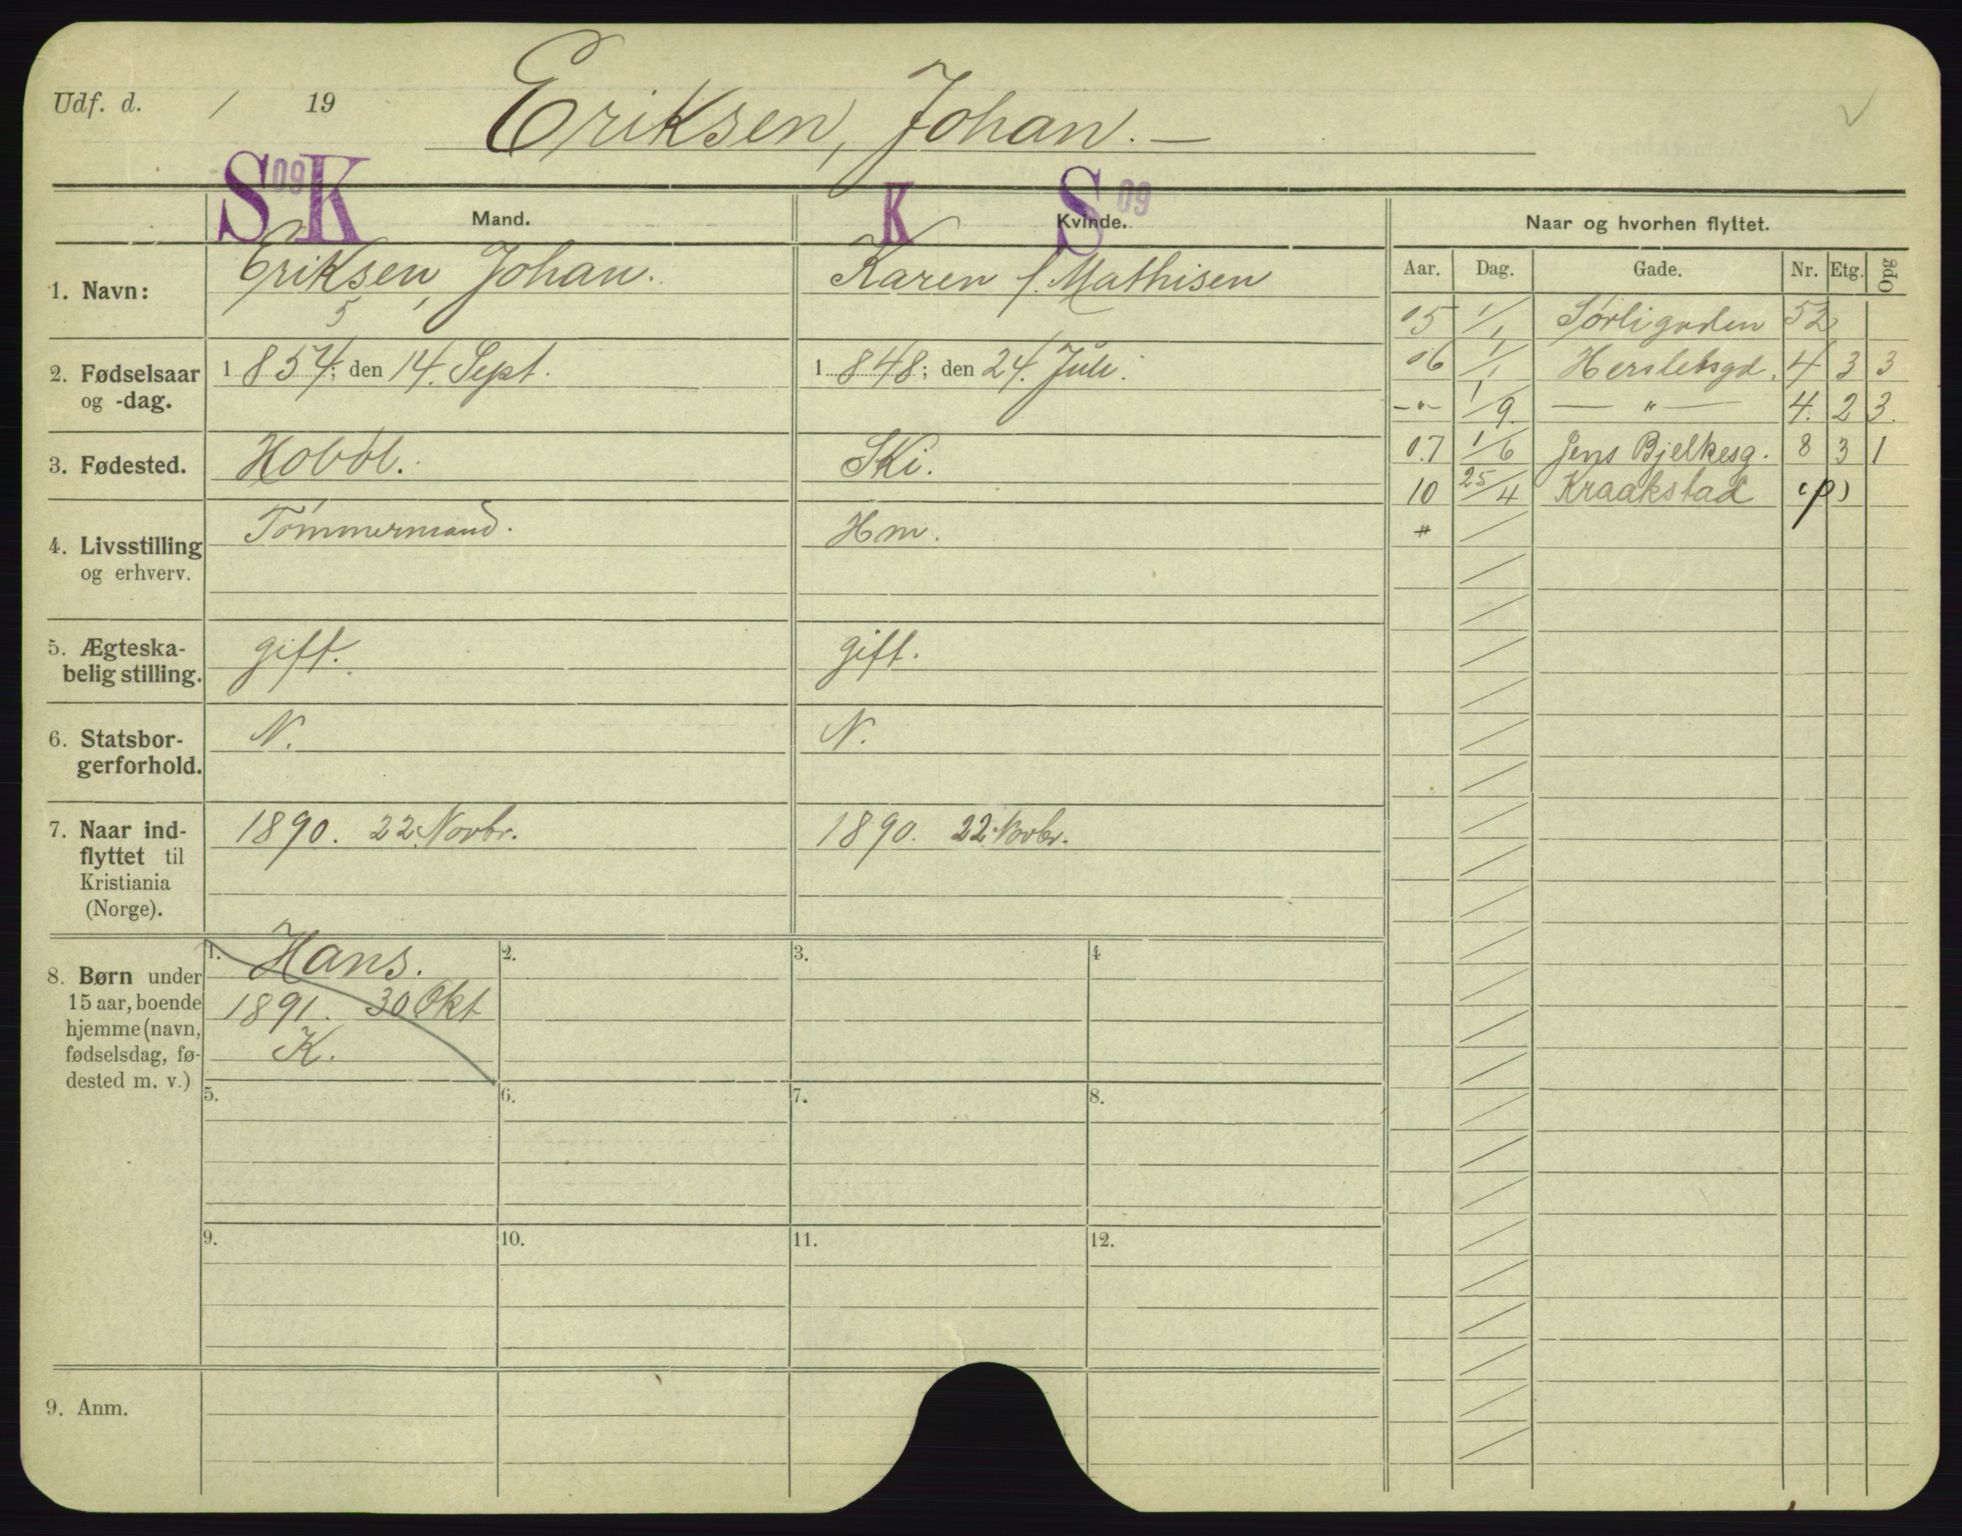 Udf. d. / 19
Eriksen, Johan. —
S 09 K
K S 09
Mand.
Kvinde.
Naar og hvorhen flyttet.
Aar. Dag. Gade. Nr. Etg. Opg
1. Navn: Eriksen, Johan. Karen f. Mathisen
5
05 1/1 Sørligaden 52
2. Fødselsaar og -dag. 1854; den 14. Sept. 1848; den 24. Juli.
06 1/1 Herslebsgd. 4 3 3
-"- 1/9. — " — 4. 2 3.
3. Fødested. Hobøl. Ski.
07 1/6 Jens Bjelkesg. 8 3 1
10 25/4 Kraakstad (p)
4. Livsstilling og erhverv. Tømmermand. Hm.
5. Ægteska-
belig stilling. gift. gift.
6. Statsbor-
gerforhold. N. N.
7. Naar ind-
flyttet til
Kristiania
(Norge).
1890. 22. Novbr. 1890. 22. Novbr.
8. Børn under
15 aar, boende
hjemme (navn,
fødselsdag, fø-
dested m. v.)
1. Hans.
1891. 30. Okt
K.
2. 3. 4
5. 6. 7. 8.
9. 10. 11. 12.
9. Anm.